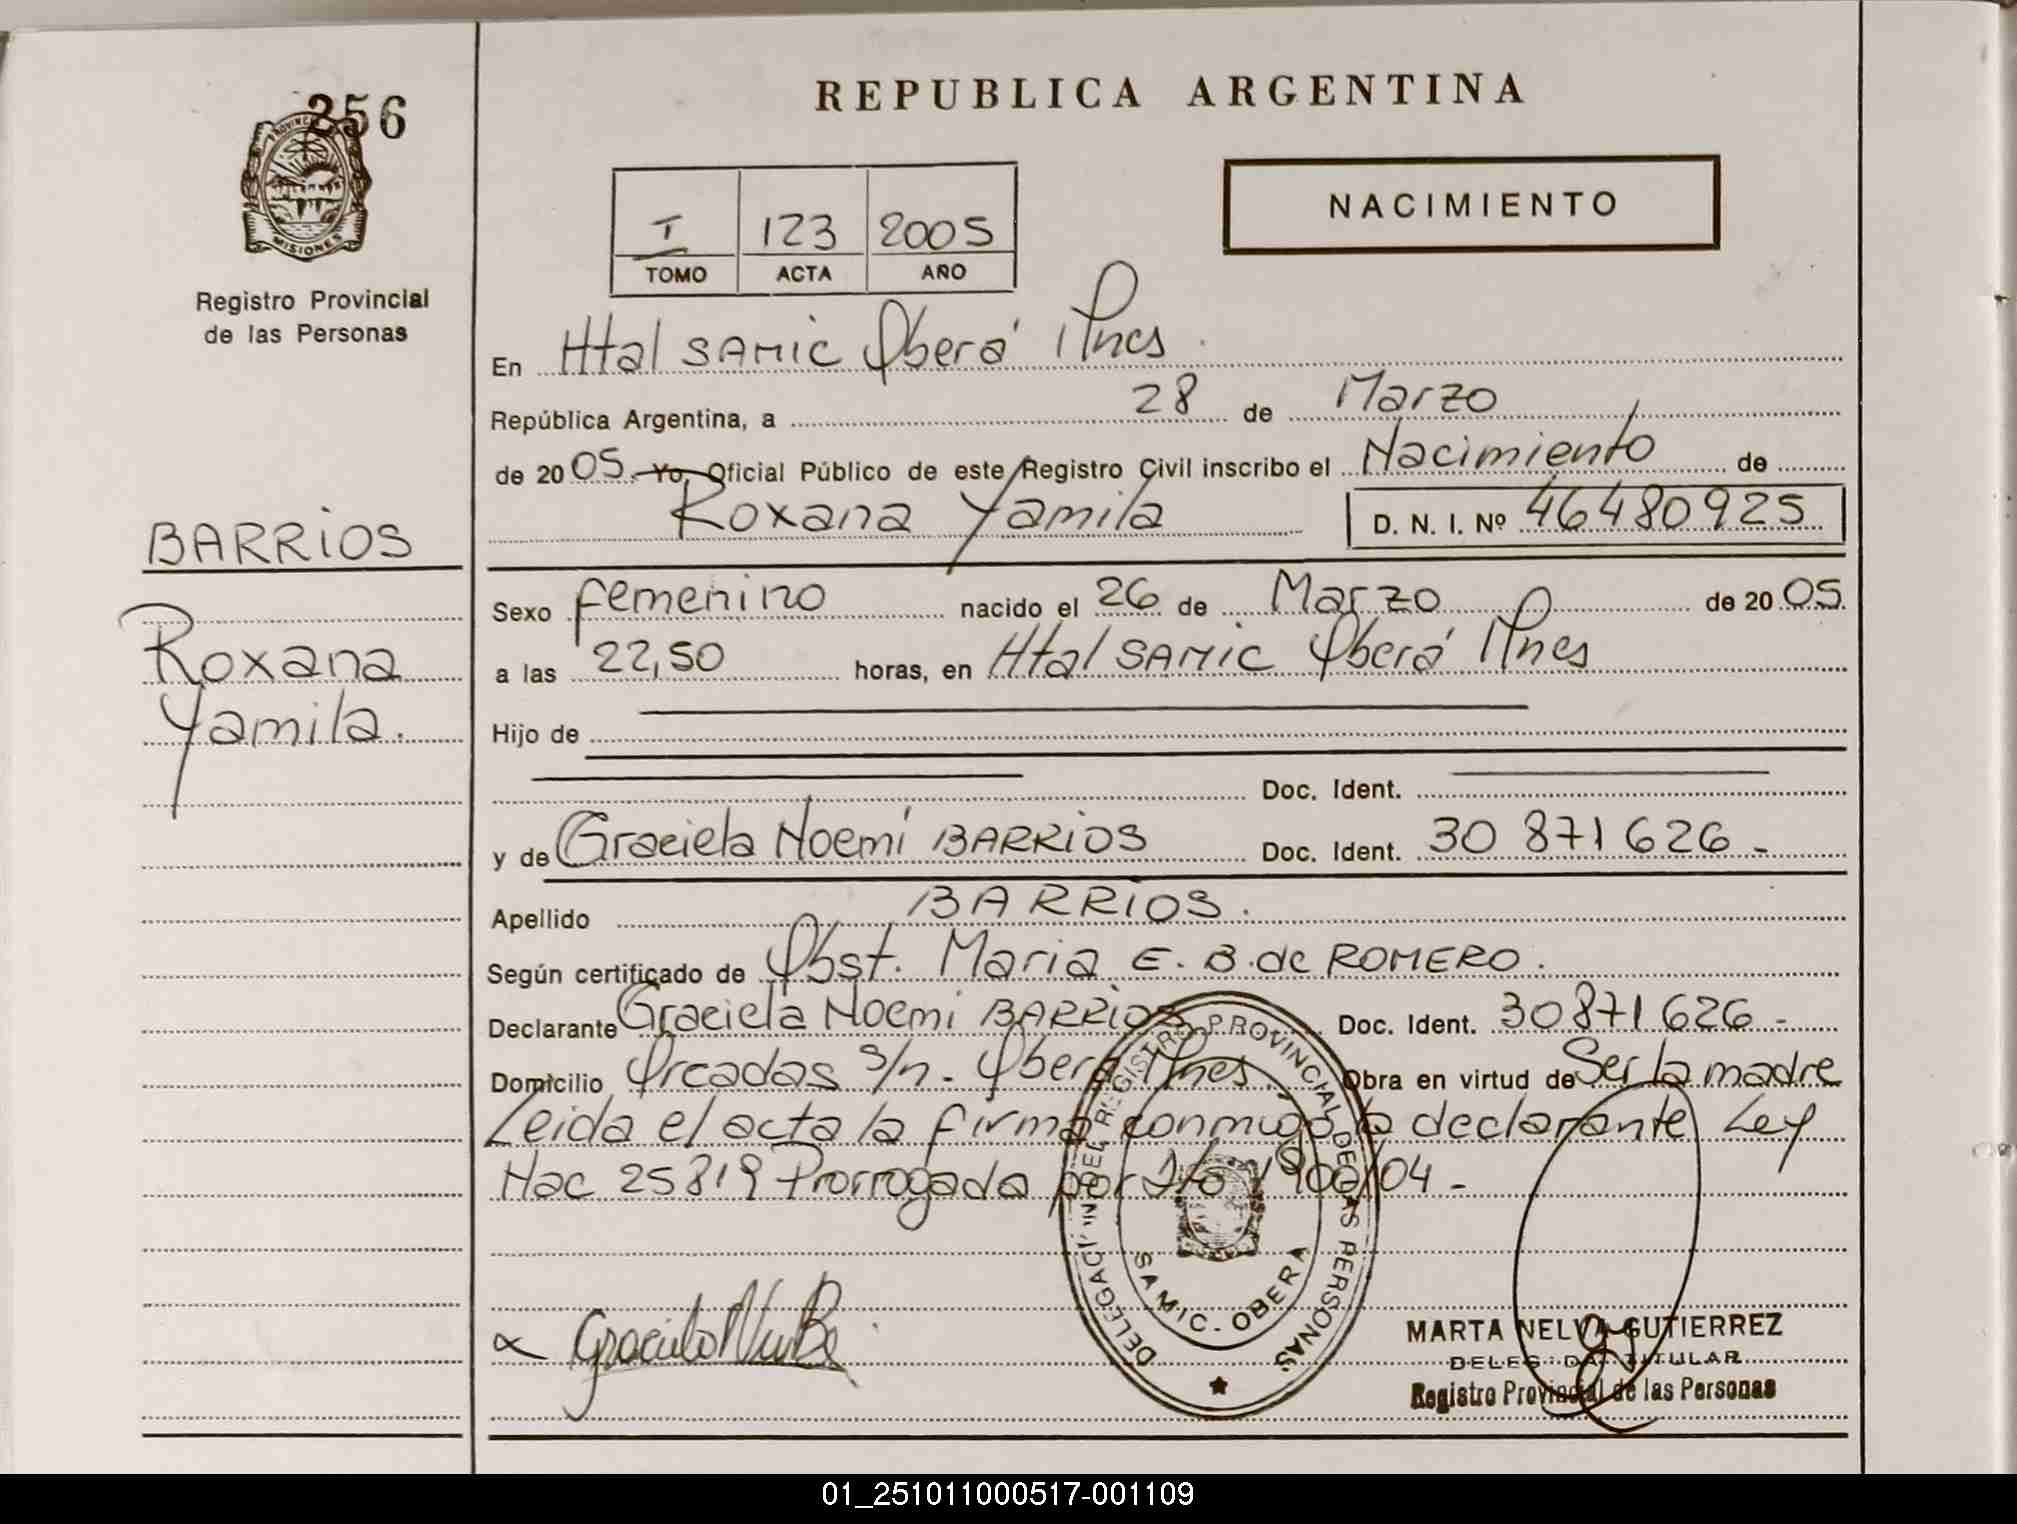 256
PROVINCIA
MISIONES
Registro Provincial
de las Personas
REPUBLICA ARGENTINA
NACIMIENTO
I 123 2005
TOMO ACTA AÑO
En Htal SAMIC Oberá Mnes.
República Argentina, a 28 de Marzo
de 20 05. Yo, Oficial Público de este Registro Civil inscribo el Nacimiento de
Roxana Yamila D. N. I. Nº 46480925
BARRIOS
Roxana
Yamila.
Sexo femenino nacido el 26 de Marzo de 20 05.
a las 22,50 horas, en Htal SAMIC Oberá Mnes
Hijo de
Doc. Ident.
y de Graciela Noemí BARRIOS Doc. Ident. 30 871 626 -
Apellido BARRIOS.
Según certificado de Obst. Maria E. B. de ROMERO.
Declarante Graciela Noemi BARRIOS Doc. Ident. 30871626 -
Domicilio Orcadas s/n. Oberá Mnes. Obra en virtud de Ser la madre
Leida el acta la firma conmigo la declarante Ley
Nac 25819 Prorrogada por 1900/04 -
DELEGACION DEL REGISTRO PROVINCIAL DE LAS PERSONAS
SAMIC - OBERA
MARTA NELVA GUTIERREZ
DELEGADA TITULAR
Registro Provincial de las Personas
01_251011000517-001109